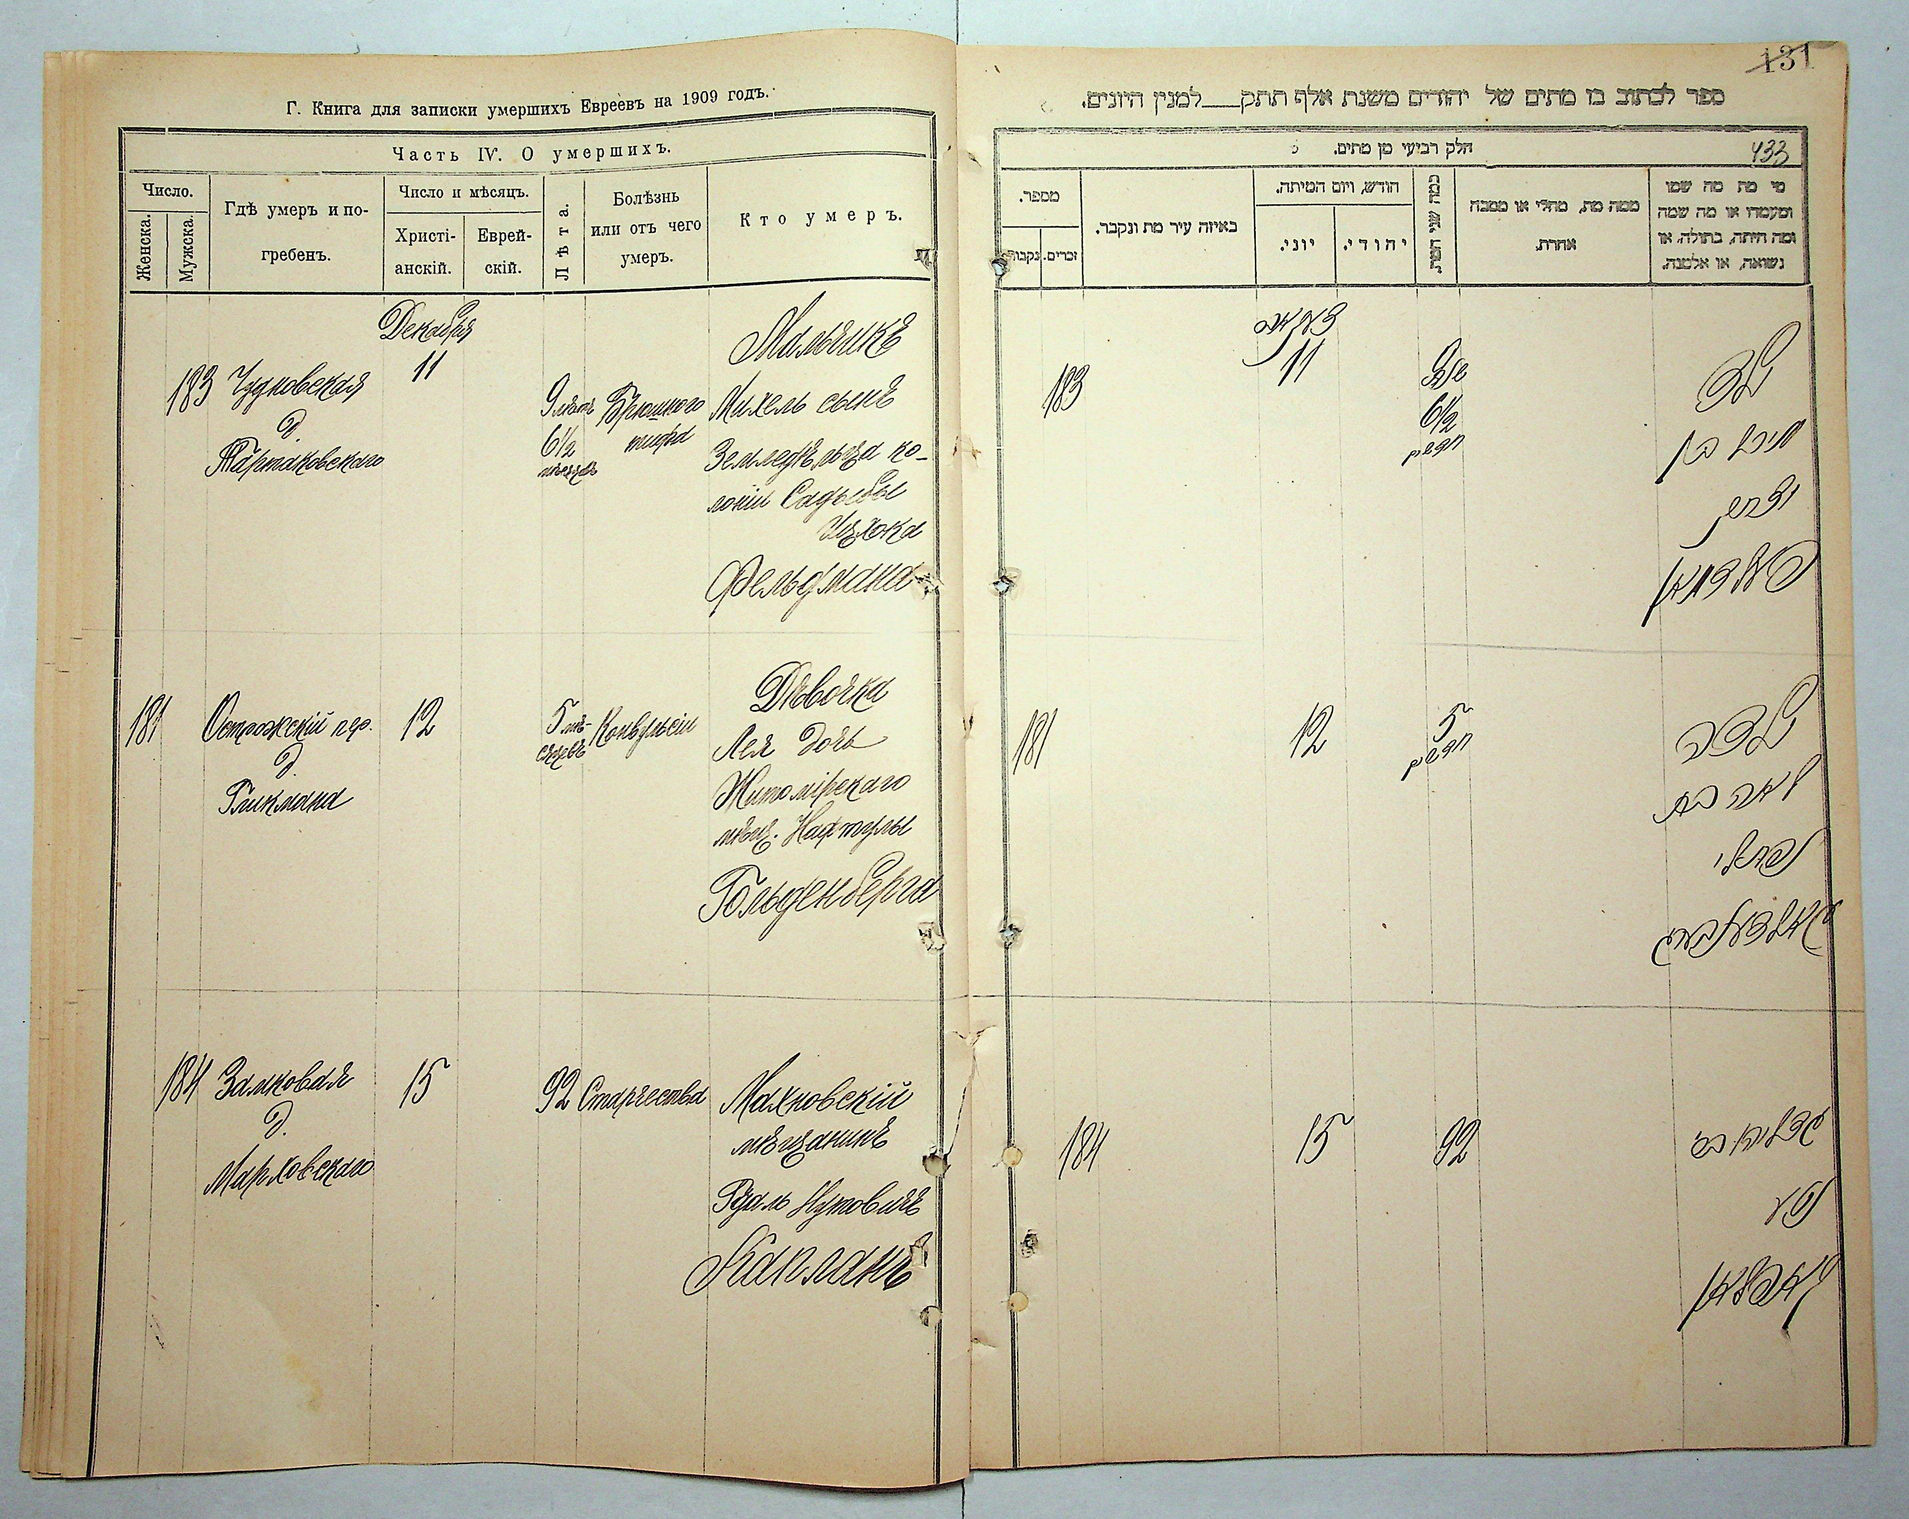 Г. Книга для записки умершихъ Евреевъ на 1909 годъ.
Часть IV. О умершихъ.
Число.
Женска.
Мужска.
Гдѣ умеръ и по-
гребенъ.
Число и мѣсяцъ.
Христі-
анскій.
Еврей-
скій.
Лѣта.
Болѣзнь
или отъ чего
умеръ.
Кто умеръ.
Декабря
183
Чудновская
д
Тартаковскаго
11
9 лѣтъ
6½
мѣсяц
Брюшного
тифа
Мальчикъ
Михель сынъ
Земледѣльца ко-
лоніи Садыбы
Ицхока
Фельдмана
181
Острожскій пер.
д
Гликмана
12
5 мѣ-
сяцевъ
Конвульсіи
Дѣвочка
Лея дочь
Житомірскаго
мѣщ. Нафтулы
Гольденберга
184
Замковая
д.
Марховскаго
15
92
Старчества
Махновскій
мѣщанинъ
Нутовичъ
Капланъ
131
ספר לכתוב בו מתים של יהודים משנת אלף תתק___למנין היונים.
חלק רביעי מן מתים.
433
מי מת מה שמו
ומעמדו או מה שמה
ומה היתה, בתולה, או
נשואה, או אלמנה.
ממה מת, מחלי או מסבה
אחרת.
כמה שני המת.
חודש, ויום המיתה.
יהודי.
יוני.
באיזה עיר מת ונקבר.
מספר.
זכרים.
נקבות.
דעקאב
183
11
9 שנה
6½
חדשים
ילד
מיכל בן
יצחק
פעלדמאן
181
12
5
חדשים
ילדה
לאה בת
נפתלי
גאלדענבערג
184
15
92
גדליהו ב"ר
נטע
קאפלאן